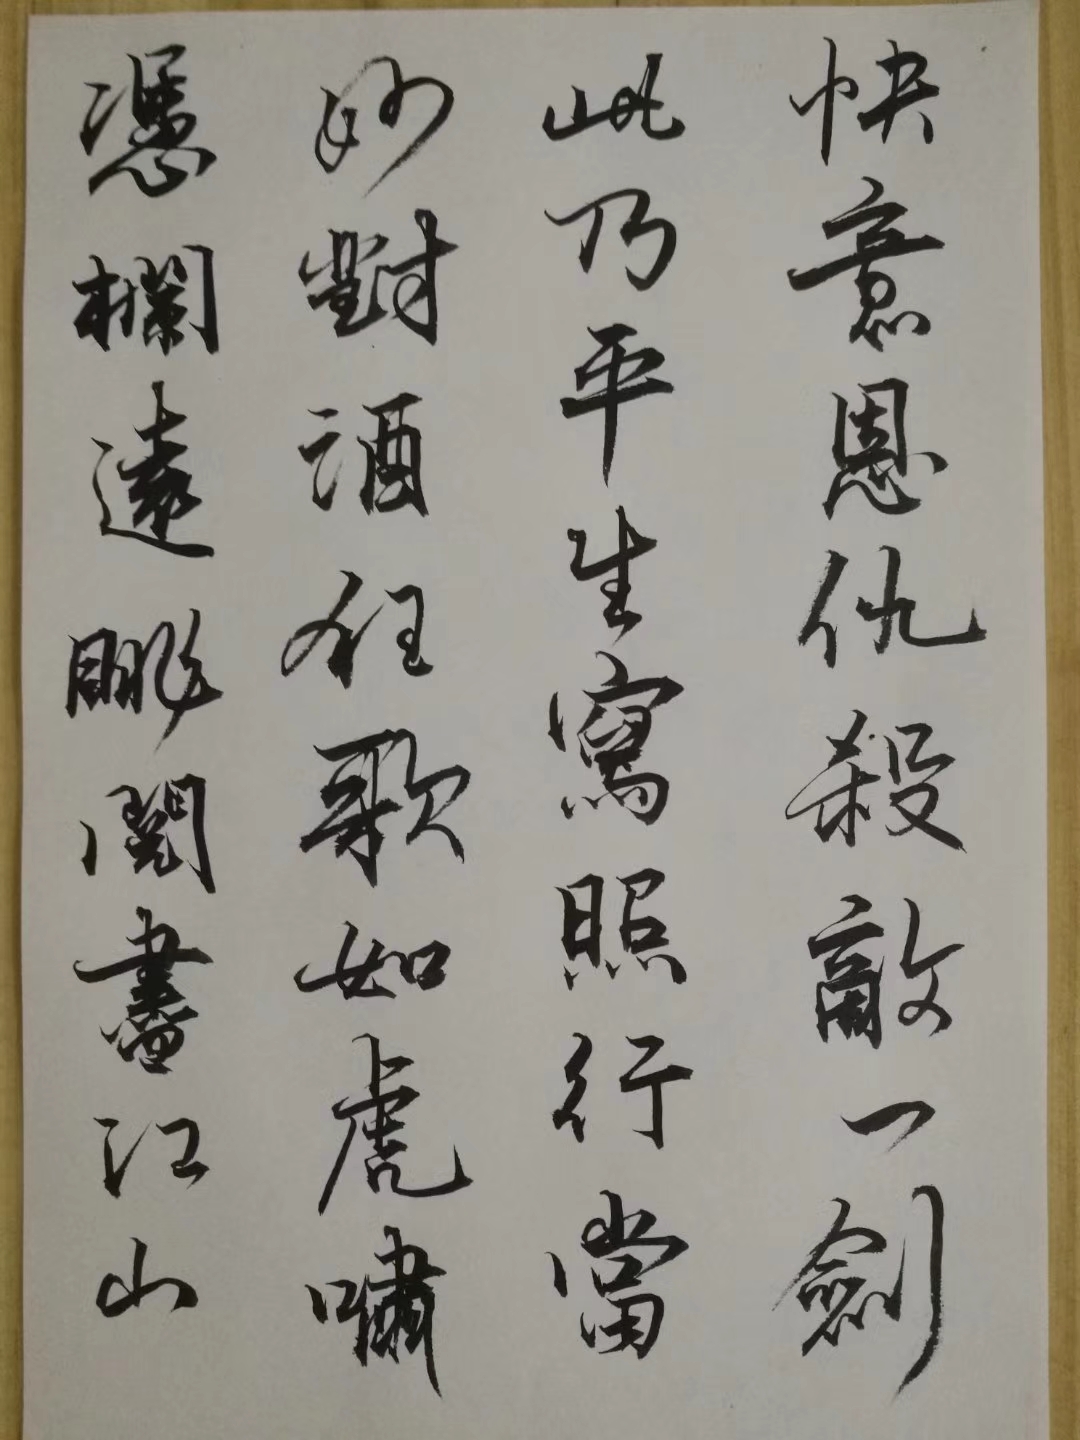 快意恩仇殺敵一劍
此乃平生寫照行當
妙對酒狂歌如虎嘯
憑欄遠眺閱盡江山